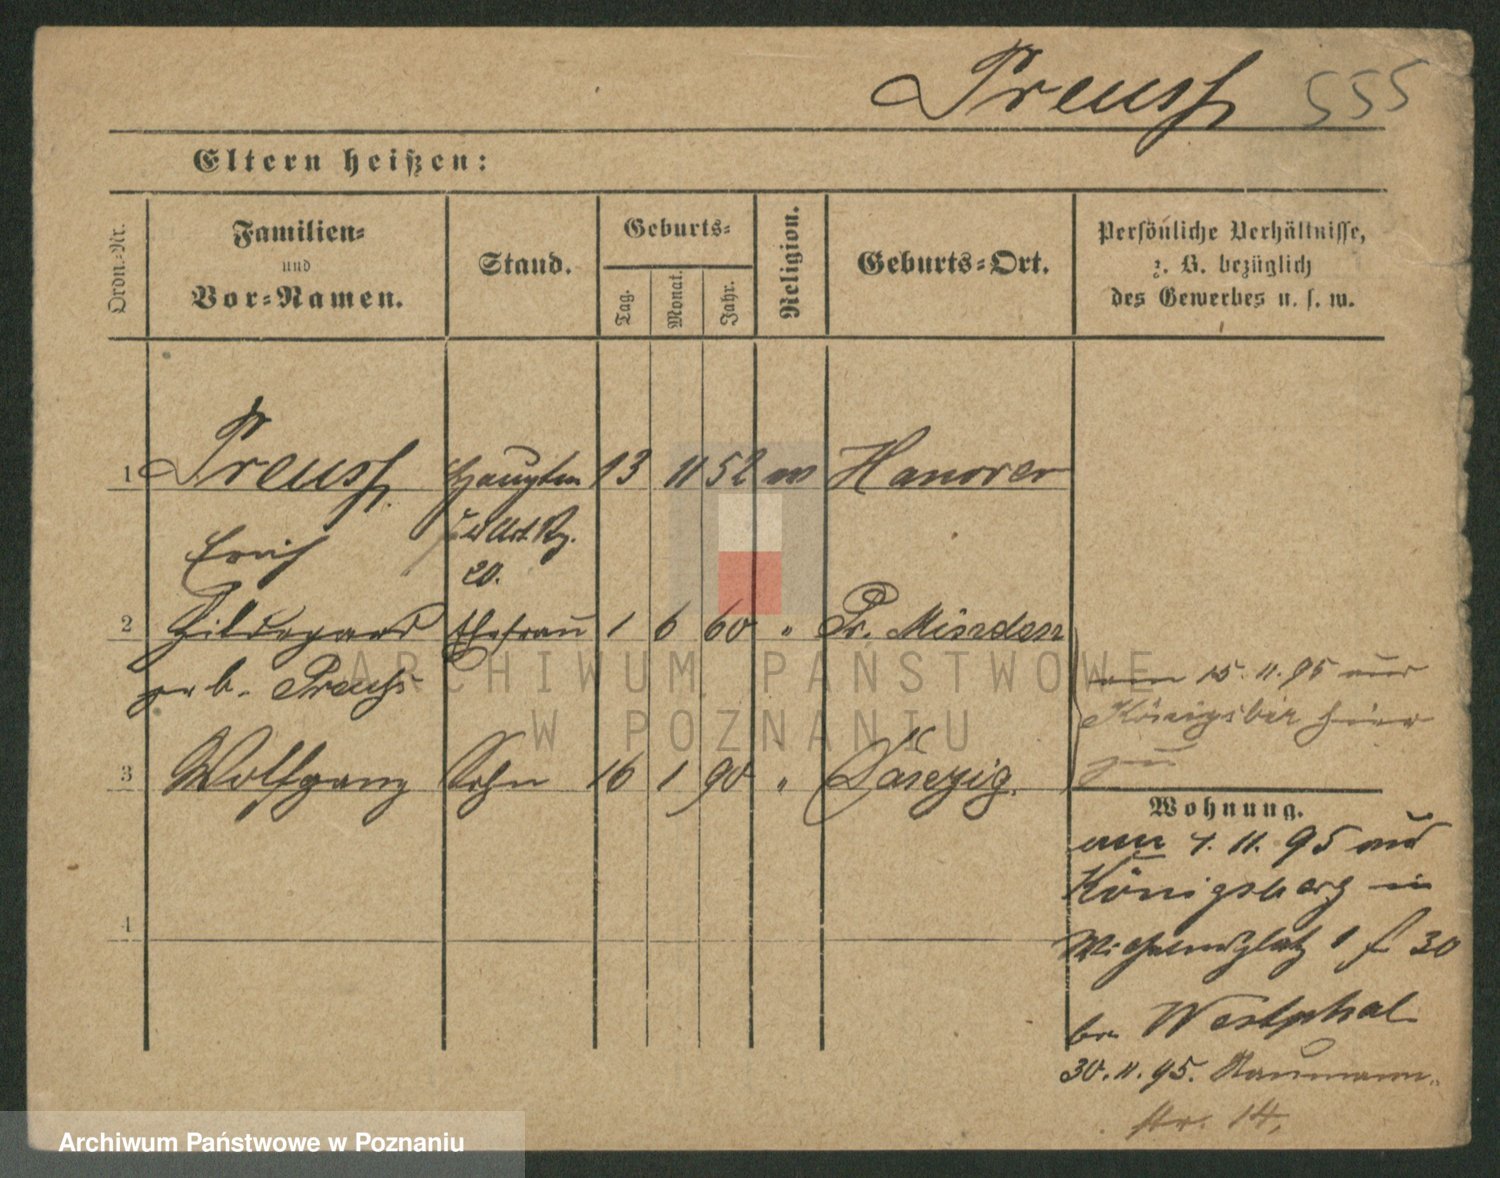 Preuss 555
Eltern heißen:
Ordn.-Nr.
Familien-
und
Vor-Namen.
Stand.
Geburts-
Tag.
Monat.
Jahr.
Religion.
Geburts-Ort.
Persönliche Verhältnisse,
z. B. bezüglich
des Gewerbes u. s. w.
1 Preuss Hauptm 13 11 52 Hanover
Erich
20.
2 Hildegard Ehefrau 1 6 60 " Pr. Minden
geb. Preuss
am 15.11.95 aus
Königsber hier
zu
3 Wolfgang Sohn 16 1 90 " Danzig.
Wohnung.
am 4.11.95 aus
Königsberg in
Wilhelmsplatz 1 f 30
br Westphal
30.11.95. Naumann-
str. 14.
4
ARCHIWUM PAŃSTWOWE
W POZNANIU
Archiwum Państwowe w Poznaniu